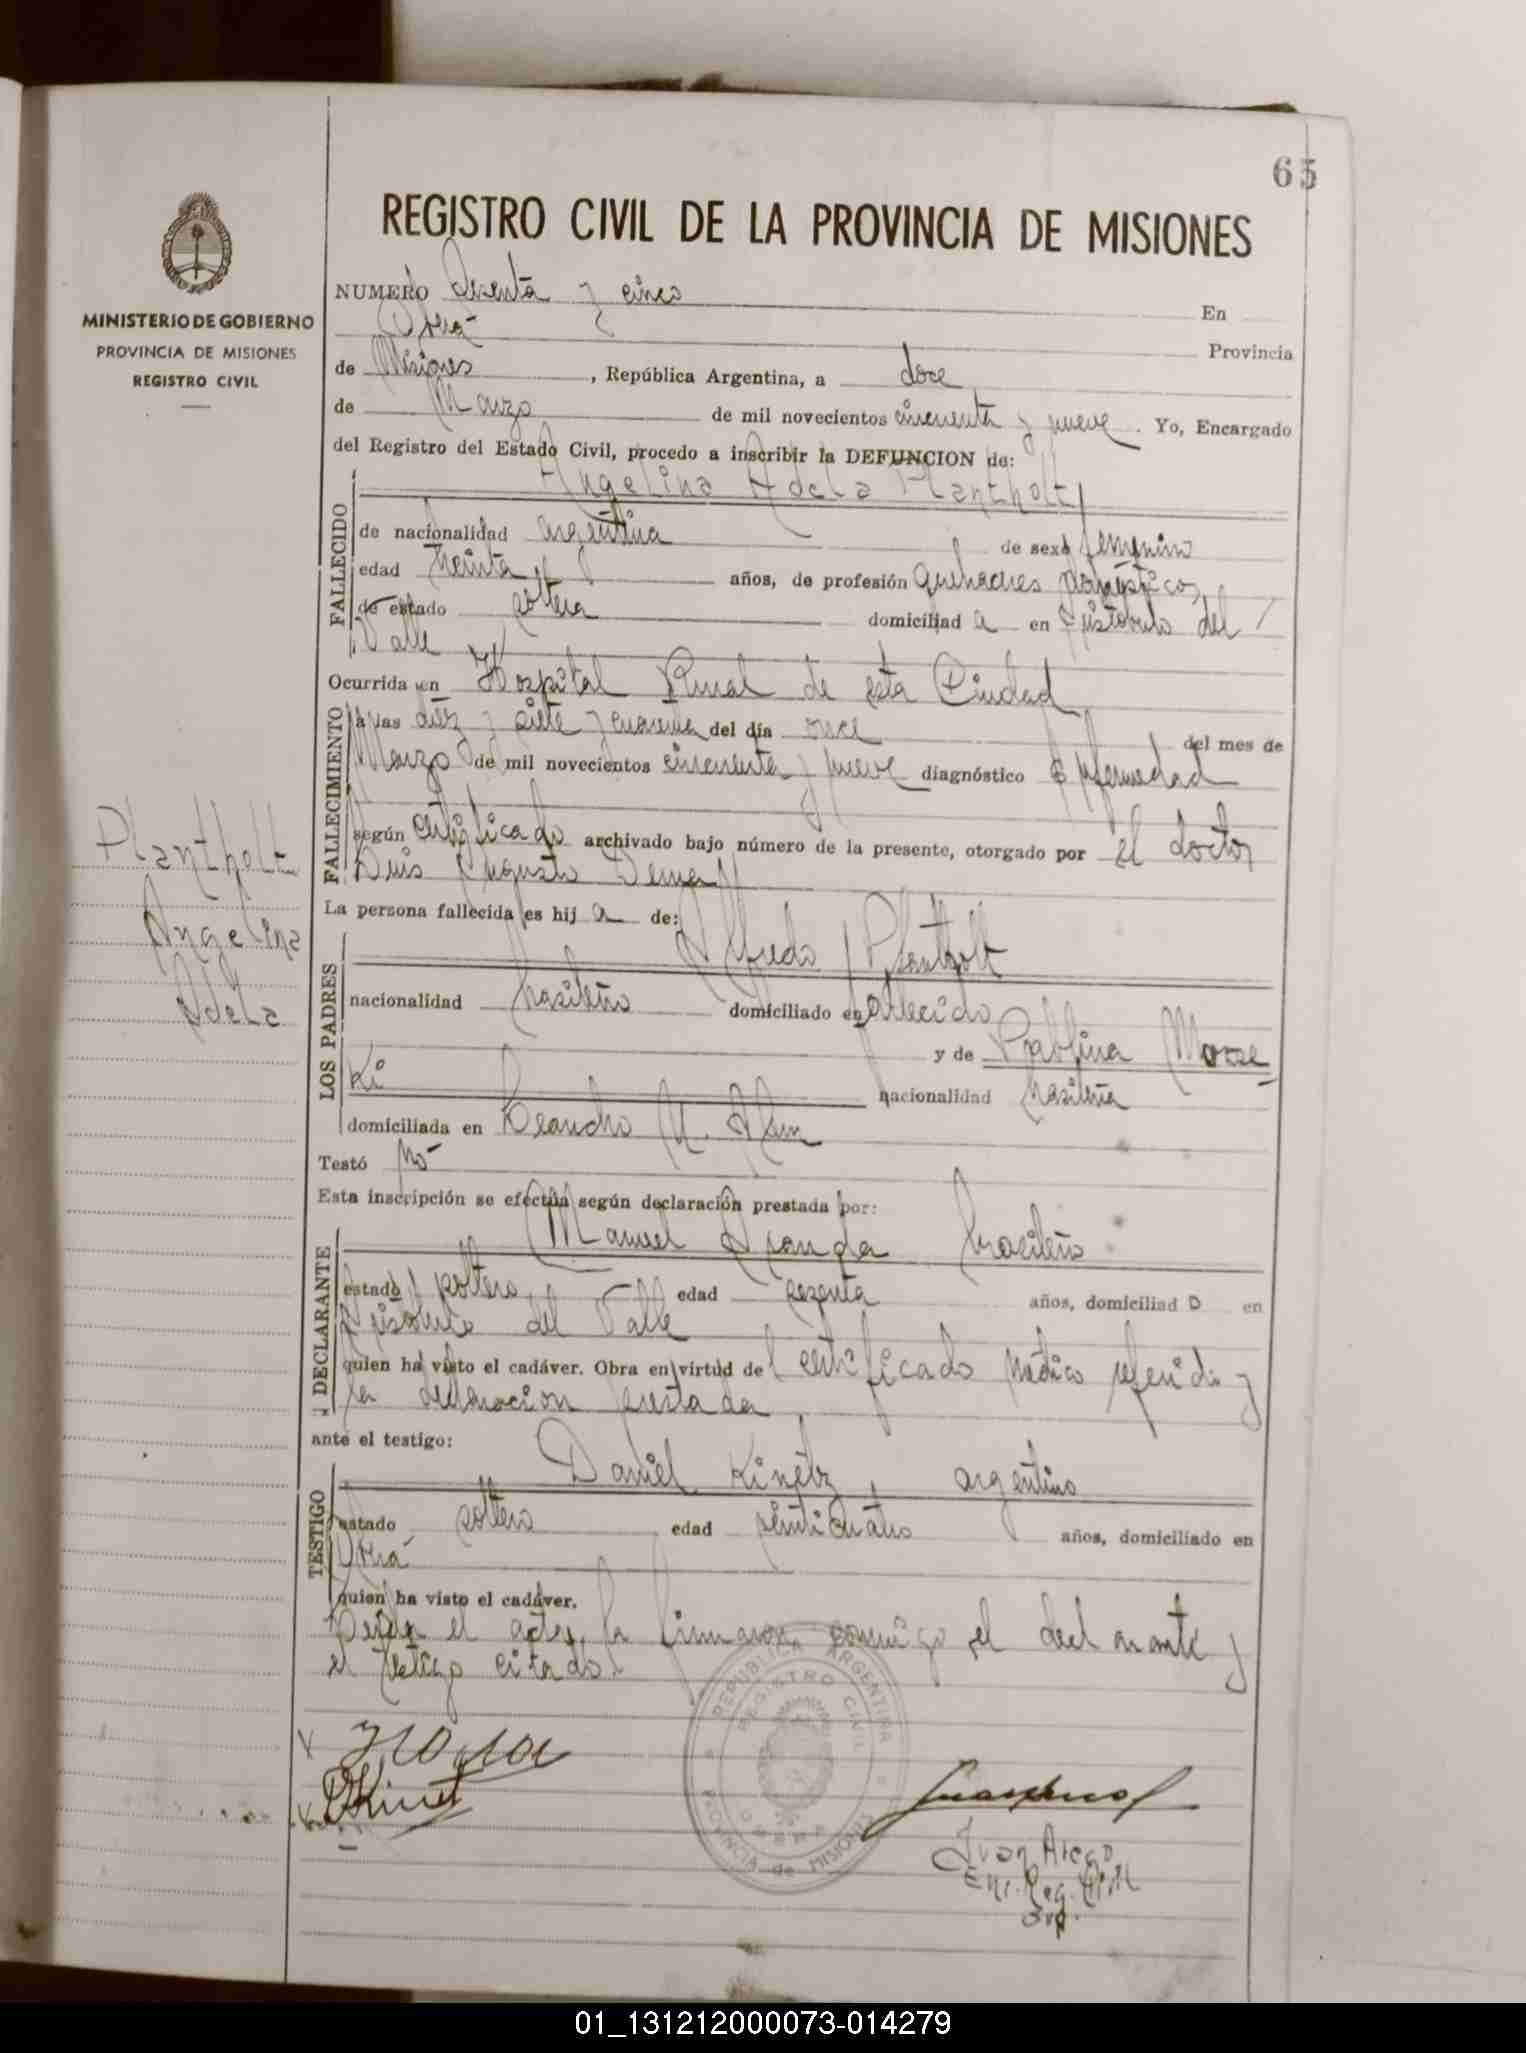 65
REGISTRO CIVIL DE LA PROVINCIA DE MISIONES
MINISTERIO DE GOBIERNO
PROVINCIA DE MISIONES
REGISTRO CIVIL
NUMERO Sesenta y cinco En
Oberá Provincia
de Misiones, República Argentina, a doce
de Marzo de mil novecientos cincuenta y nueve. Yo, Encargado
del Registro del Estado Civil, procedo a inscribir la DEFUNCION de:
Angelina Adela Plantholt
FALLECIDO
de nacionalidad argentina de sexo femenino
edad treinta años, de profesión quehaceres domésticos
de estado soltera domiciliad a en Aristóbulo del
Valle
Ocurrida en Hospital Rural de esta Ciudad
FALLECIMIENTO
a las diez y siete y cuarenta del día once del mes de
Marzo de mil novecientos cincuenta y nueve diagnóstico Enfermedad
según certificado archivado bajo número de la presente, otorgado por el doctor
Luis Augusto
La persona fallecida es hij a de:
Alfredo Plantholt
LOS PADRES
nacionalidad brasileño domiciliado en fallecido
y de
Ki nacionalidad brasileña
domiciliada en Leandro N. Alem
Testó no
Esta inscripción se efectúa según declaración prestada por:
Manuel brasileño
DECLARANTE
estado soltero edad sesenta años, domiciliad o en
Aristóbulo del Valle
quien ha visto el cadáver. Obra en virtud del certificado médico referido y
la declaración prestada
ante el testigo:
Daniel Kinetz, argentino
TESTIGO
estado soltero edad veinticuatro años, domiciliado en
Oberá
quien ha visto el cadáver.
Leída el acta, la firmaron conmigo el declarante y
el testigo citado.
Plantholt
Angelina
Adela
REPUBLICA ARGENTINA
REGISTRO CIVIL
OBERA
PROVINCIA de MISIONES
Enc. Reg. Civil
01_131212000073-014279